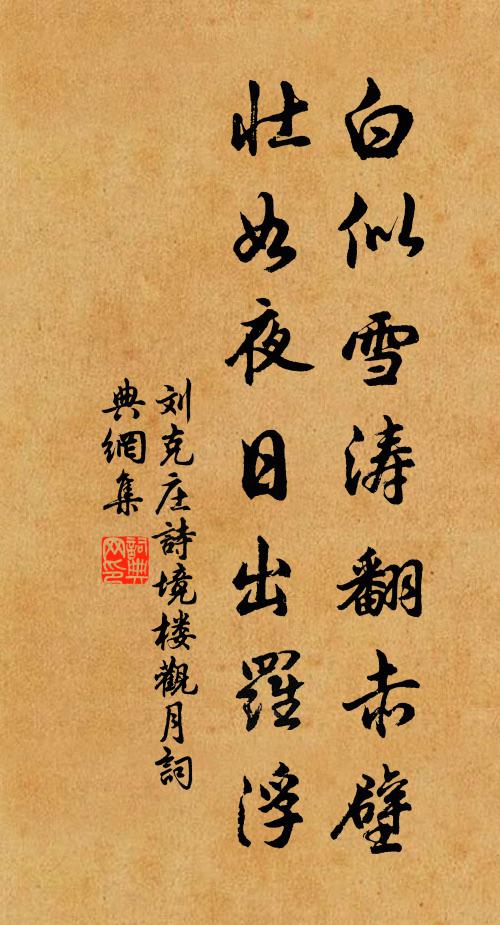 白似雪涛翻赤壁
壮如夜日出羅浮
刘克庄詩境楼觀月詞
典網集
詞典网印